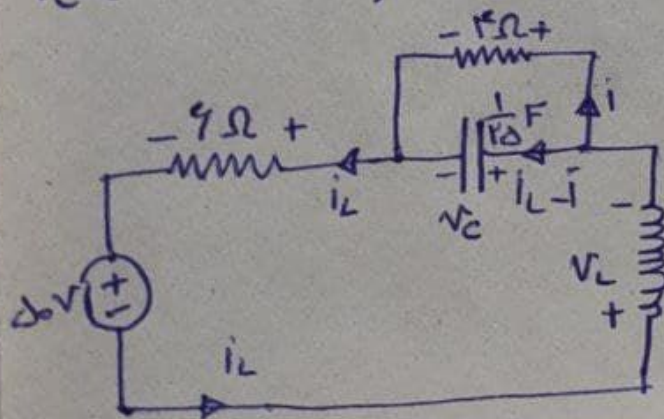 - ۴Ω +
i
- ۶Ω +
۱/۲۵ F
iL
-
+
iL - i
vC
-
VL
+
۵۰V
+
-
iL